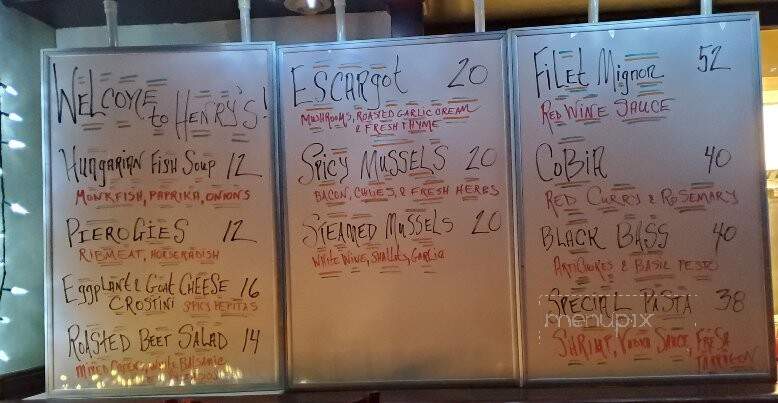 Welcome
to Henry's!
Hungarian Fish Soup 12
Monkfish, Paprika, Onions
Pierogies 12
Rib Meat, Horseradish
Eggplant & Goat Cheese 16
Crostini Spicy Pepitas
Roasted Beet Salad 14
Mixed White Balsamic
Escargot 20
Mushrooms, Roasted Garlic Cream
& Fresh Thyme
Spicy Mussels 20
Bacon, Chiles, & Fresh Herbs
Steamed Mussels 20
White Wine, Shallots, Garlic
Filet Mignon 52
Red Wine Sauce
Cobia 40
Red Curry & Rosemary
Black Bass 40
Artichokes & Basil Pesto
Special Pasta 38
menupix
Shrimp, Vodka Sauce, Fresh
Tarragon